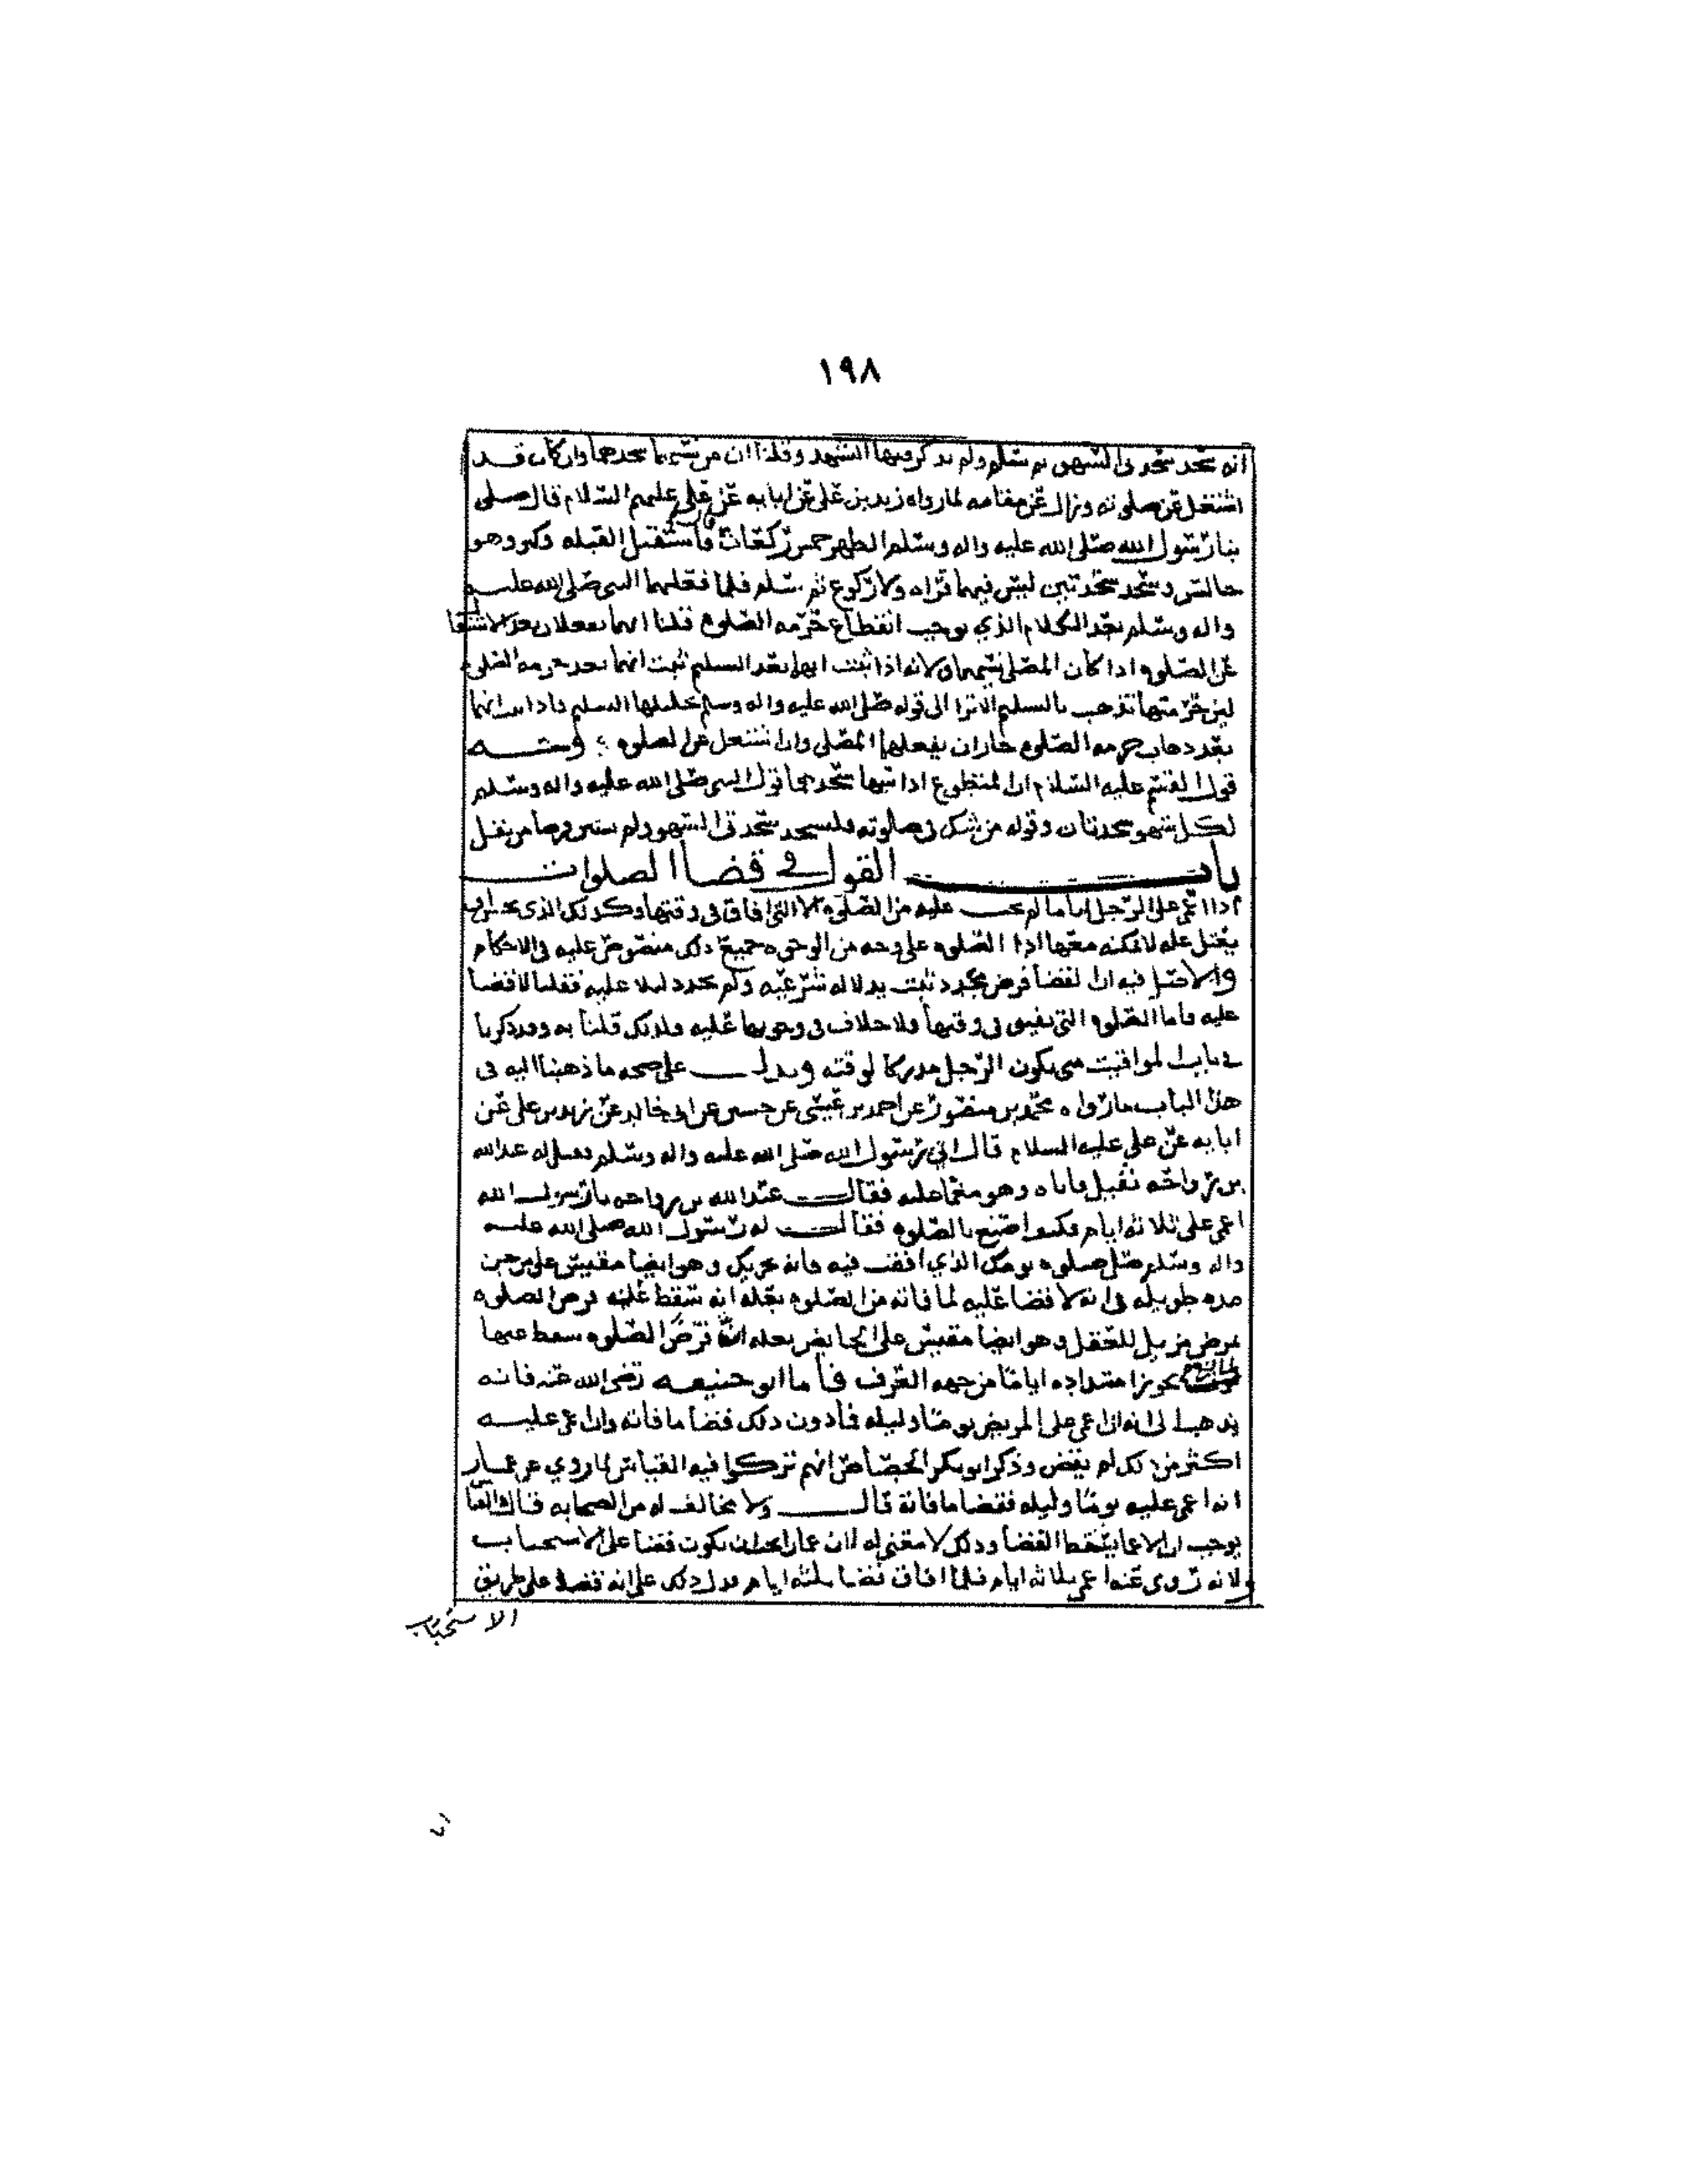 ١٩٨
انه سجد سجدتي السهو ثم سلم ولم يذكر فيها التشهد وقلنا ان من نسيهما سجدهما وان كان قد
اشتغل عن صلوته وزال عن مقامه لما رواه زيد بن علي عن ابايه عن علي عليهم السلام قال صلى
بنا رسول الله صلى الله عليه واله وسلم الظهر خمس ركعات فاستقبل القبله وكبر وهو
جالس وسجد سجدتين ليس فيهما قراه ولا ركوع ثم سلم فلما فعلهما النبي صلى الله عليه
واله وسلم بعد الكلام الذي يوجب انقطاع حرمه الصلوه قلنا انهما يفعلان بعد الاشتغا
عن الصلوه اذا كان المصلي نسيهما ولانه اذا ثبت انهما بعد التسليم ثبت انهما بعد حرمه الصلوه
لان حرمتها تذهب بالتسليم الا ترا الى قوله صلى الله عليه واله وسلم تحليلها التسليم فاذا انهما
بعد ذهاب حرمه الصلوه جاز ان يفعلهما المصلي وان اشتغل عن الصلوه
قول القسم عليه السلام ان المتطوع اذا سها سجد قول النبي صلى الله عليه واله وسلم
لكل سهو سجدتان وقوله من شك في صلوته فليسجد سجدتي السهو ولم فرضا من نفل
باب القول في قضا الصلوات
اذا اغمي على الرجل اياما لم يجب عليه من الصلوه الا التي افاق في وقتها وكذلك الذي
يعتل عله لا يمكنه معها اذا الصلوه على وجه من الوجوه جميع ذلك منصوص عليه في الاحكام
والاصل فيه ان القضا فرض مجدد ثبت بدلاله شرعيه ولم نجد دليلا عليه فقلنا لا قضا
عليه فاما الصلوه التي يفيق في وقتها ولا خلاف في وجوبها عليه ولذلك قلنا به وقد ذكرنا
في باب المواقيت متى يكون الرجل مدركا لوقته ويدل على صحه ما ذهبنا اليه في
هذا الباب ما رواه محمد بن منصور عن احمد بن عيسى عن حسين عن ابي خالد عن زيد بن علي عن
ابايه عن علي عليه السلام قال اتي رسول الله صلى الله عليه واله وسلم فقيل له عبدالله
بن رواحه ثقيل فاتاه وهو مغما عليه فقال عبد الله بن رواحه يا رسول الله
اغمي علي ثلاثه ايام فكيف اصنع بالصلوه فقال له رسول الله صلى الله عليه
واله وسلم صل صلوه يومك الذي افقت فيه فانه يجزيك وهو ايضا مقيس على من جن
مده طويله في انه لا قضا عليه لما فاته من الصلوه بعله انه سقط عنه فرض الصلوه
بمرض مزيل للعقل وهو ايضا مقيس على الحايض بعله ان فرض الصلوه سقط عنها
يجوز امتداده اياما من جهه العرف فاما ابو حنيفه رضي الله عنه فانه
يذهب الى انه ان اغمي على المريض يوما وليله فما دون ذلك قضا ما فاته وان اغمي عليه
اكثر من ذلك لم يقض وذكر ابو بكر الجصاص انهم تركوا فيه القياس لما روي عن عمار
انه اغمي عليه يوما وليله فقضا ما فاته قال ولا مخالف له من الصحابه قال والقياس
يوجب ان الاغما يسقط القضا وذلك لا معنى له لان عمارا يجوز ان يكون قضا على الاستحباب
ولانه روي عنه اغمي ثلاثه ايام فلما افاق قضا ثلثه ايام فدل ذلك على انه قضا على طريق
الاستحباب